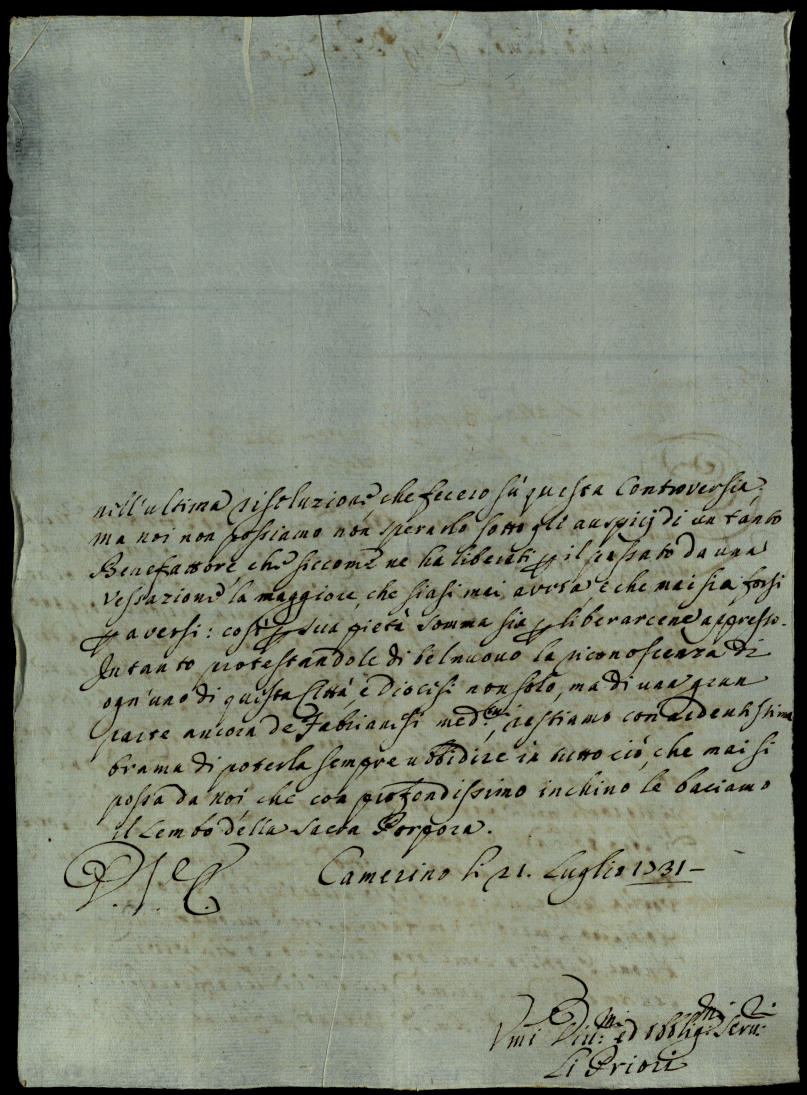 nell'ultima risoluzione, che fecero sù questa Controversia,
ma noi non possiamo non sperarlo sotto gli auspicij di un tanto
Benefattore che siccome ne ha liberati p il passato da una
vessazione la maggiore, che siasi mai avuta e che mai sia forsi
p aversi: così p sua pietà somma sia p liberarcene appresso.
Intanto protestandole di bel nuovo la riconoscenza di
ogn'uno di questa Città, e Diocesi non solo, ma di una gran
parte ancora de Fabrianesi med.mi, restiamo con ardentissima
brama di poterla sempre ubbidire in tutto ciò, che mai si
possa da noi che con profondissimo inchino le baciamo
il Lembo della Sacra Porpora.
Camerino li 21. Luglio 1731
Vmi Div.mi ed obblig.mi Serv.ri
Li Priori